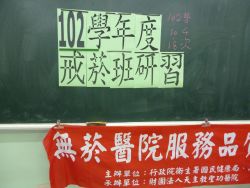 102學年度
戒菸班研習
102學
無菸醫院服務品
主辦單位：行政院衛生署國民健康局
承辦單位：財團法人天主教聖功醫院